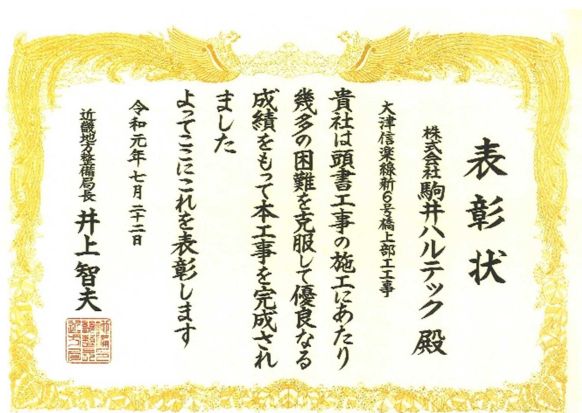 表彰状
株式会社 駒井ハルテック 殿
大津信楽線新6号橋上部工工事
貴社は頭書工事の施工にあたり
幾多の困難を克服して優良なる
成績をもって本工事を完成され
ました
よってここにこれを表彰します
令和元年七月二十二日
近畿地方整備局長 井上智夫